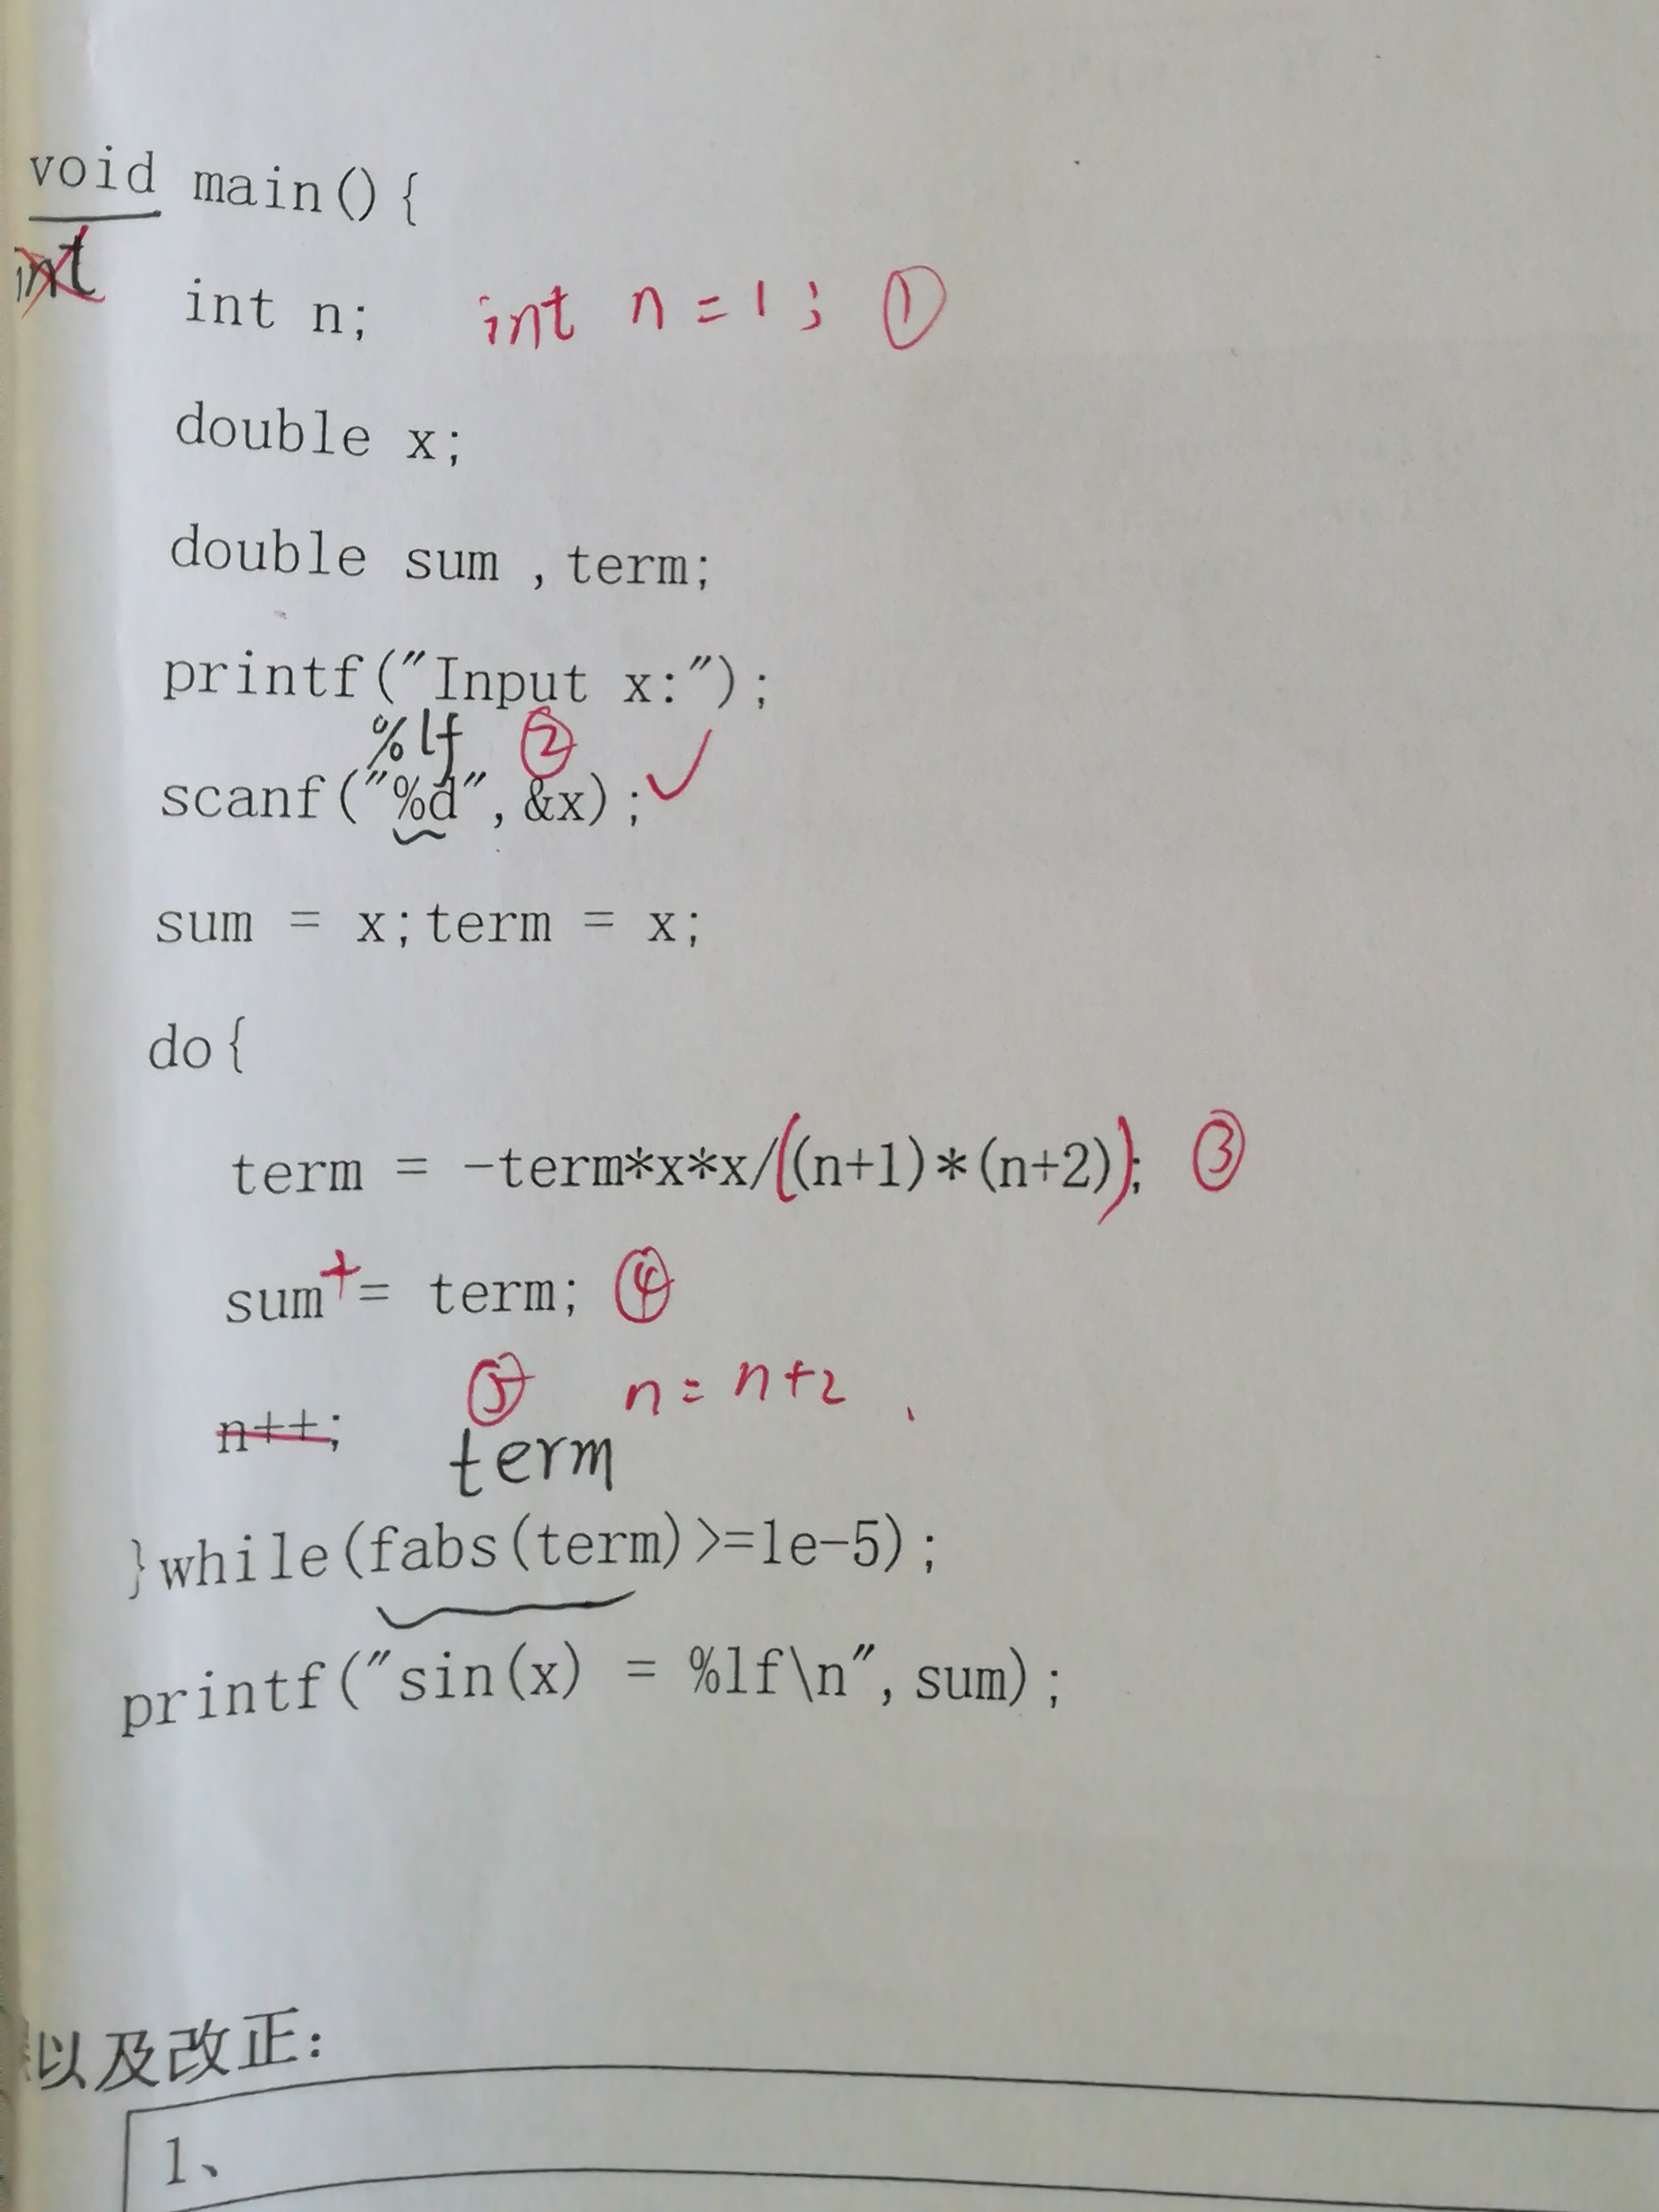 void main(){
int
int n; int n=1; ①
double x;
double sum ,term;
printf("Input x:");
%lf ②
scanf("%d",&x); ✓
sum = x;term = x;
do{
term = -term*x*x/((n+1)*(n+2)); ③
sum+= term; ④
n++; ⑤ n=n+2
term
}while(fabs(term)>=1e-5);
printf("sin(x) = %lf\n",sum);
以及改正:
1、